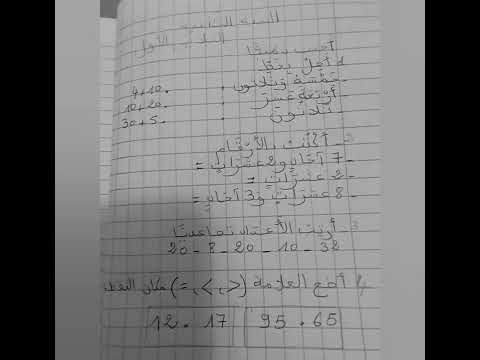 السنة الثانية
الثلاثي الأول
أحسب ذهنيا
1 أصل بخط
خمسة وثلاثون . . 4+10
أربعة عشر . . 10+20
ثلاثون . . 30+5
2 - أكتب بالأرقام
- 7 آحاد و2 عشرات =
- 2 عشرات =
- 8 عشرات و3 آحاد =
3 - أرتب الأعداد تصاعديا
20 - 8 - 20 - 10 - 32
4 أضع العلامة (>, <, =) مكان النقط
12 . 17 95 . 65